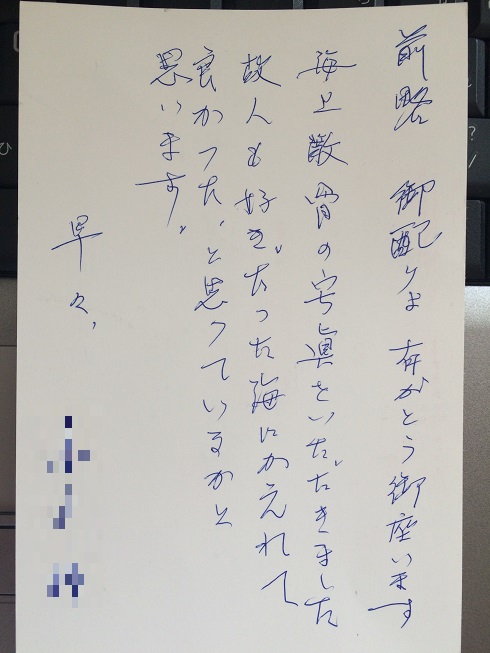 前略 御配りょ有がとう御座います
海上散骨の写真をいただきました
故人も好きだった海にかえれて
良かった、と思っているかと
思います。
早々、